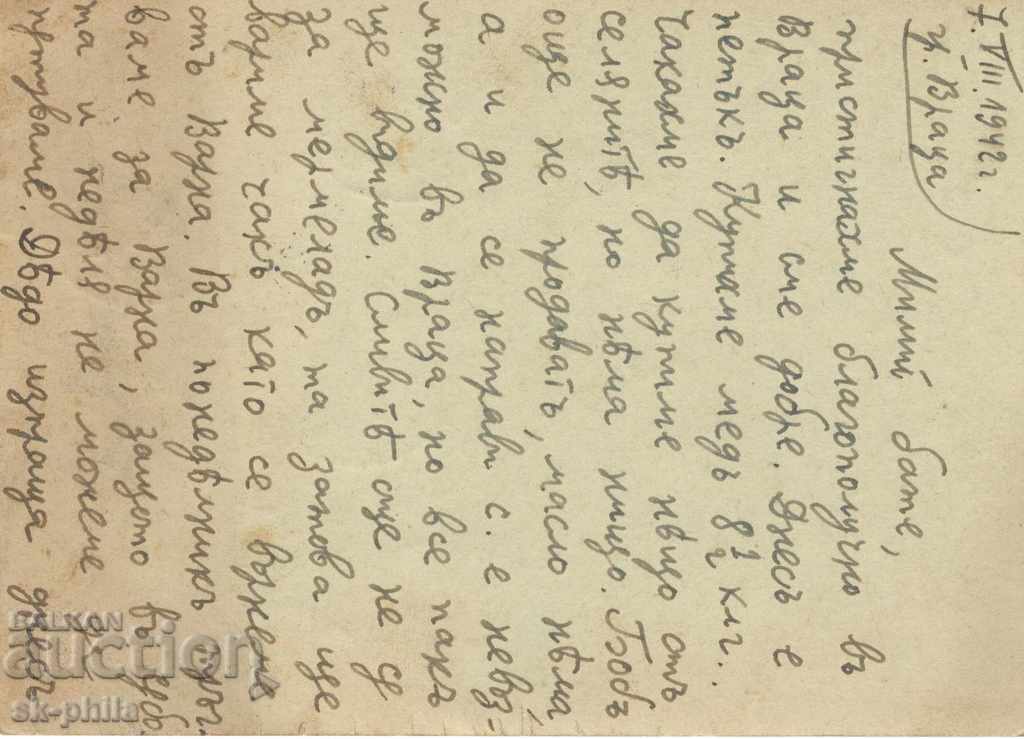 7.VIII.1942г.
гр. Враца
Милий бате,
пристигнахме благополучно въ
Враца и сме добре. Днесъ е
петъкъ. Купихме медъ 8 1/2 клг.
Чакаме да купиме нѣщо отъ
селянитѣ, но нѣма нищо. Бобъ
още не продаватъ, масло нѣма
а и да се направи с. е невъз-
можно въ Враца, но все пакъ
ще видиме. Сливитѣ още не с
за мермеладъ, та затова ще
вариме чакъ като се върнеме
отъ Варна. Въ понедѣлникъ
ваме за Варна, защото въ
та и недѣля не можеме да
пътуваме. Дѣдо изпраща днесъ
BALKAN
auction
sk-phila